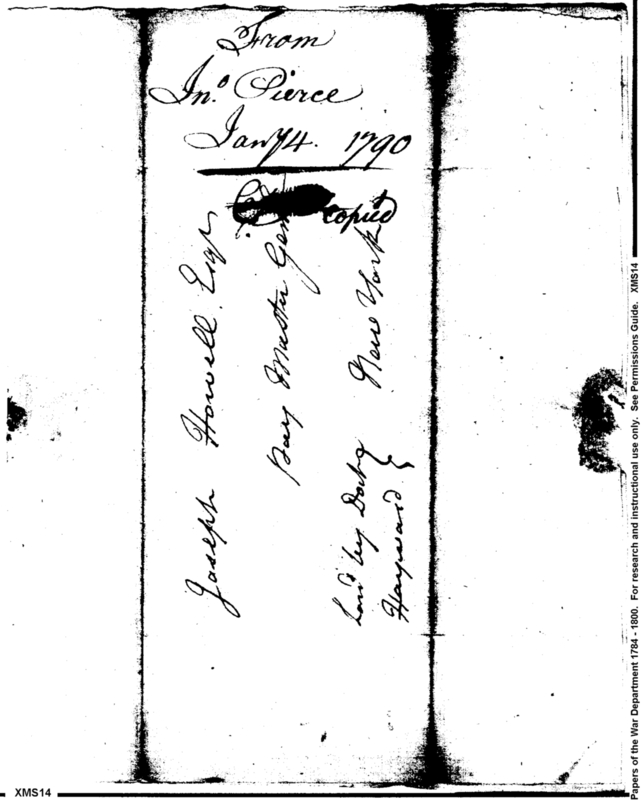 From
Jno. Pierce
Jany 4. 1790
Copied
Joseph Howell Esqr
Pay Master Genl
New York
hand by Doctr }
Hayward
Papers of the War Department 1784 - 1800. For research and instructional use only. See Permissions Guide. XMS14
XMS14